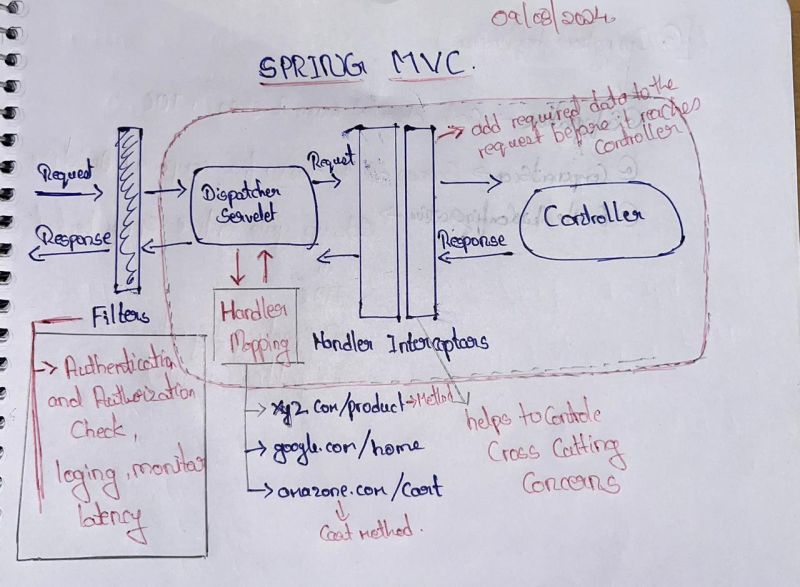 09/08/2024.
SPRING MVC.
→ add required data to the
request before it reaches
Controller
Request
Response
Dispatcher
Servelet
Request
Controller
Response
Filters
Handler
Mapping
Handler Interceptors
→ Authentication
and Authorization
Check,
loging, monitor
latency
→ xyz.com/product → Method
→ google.com/home
→ amazone.com/Cart
Cart Method.
helps to Controle
Cross Cutting
Concerns